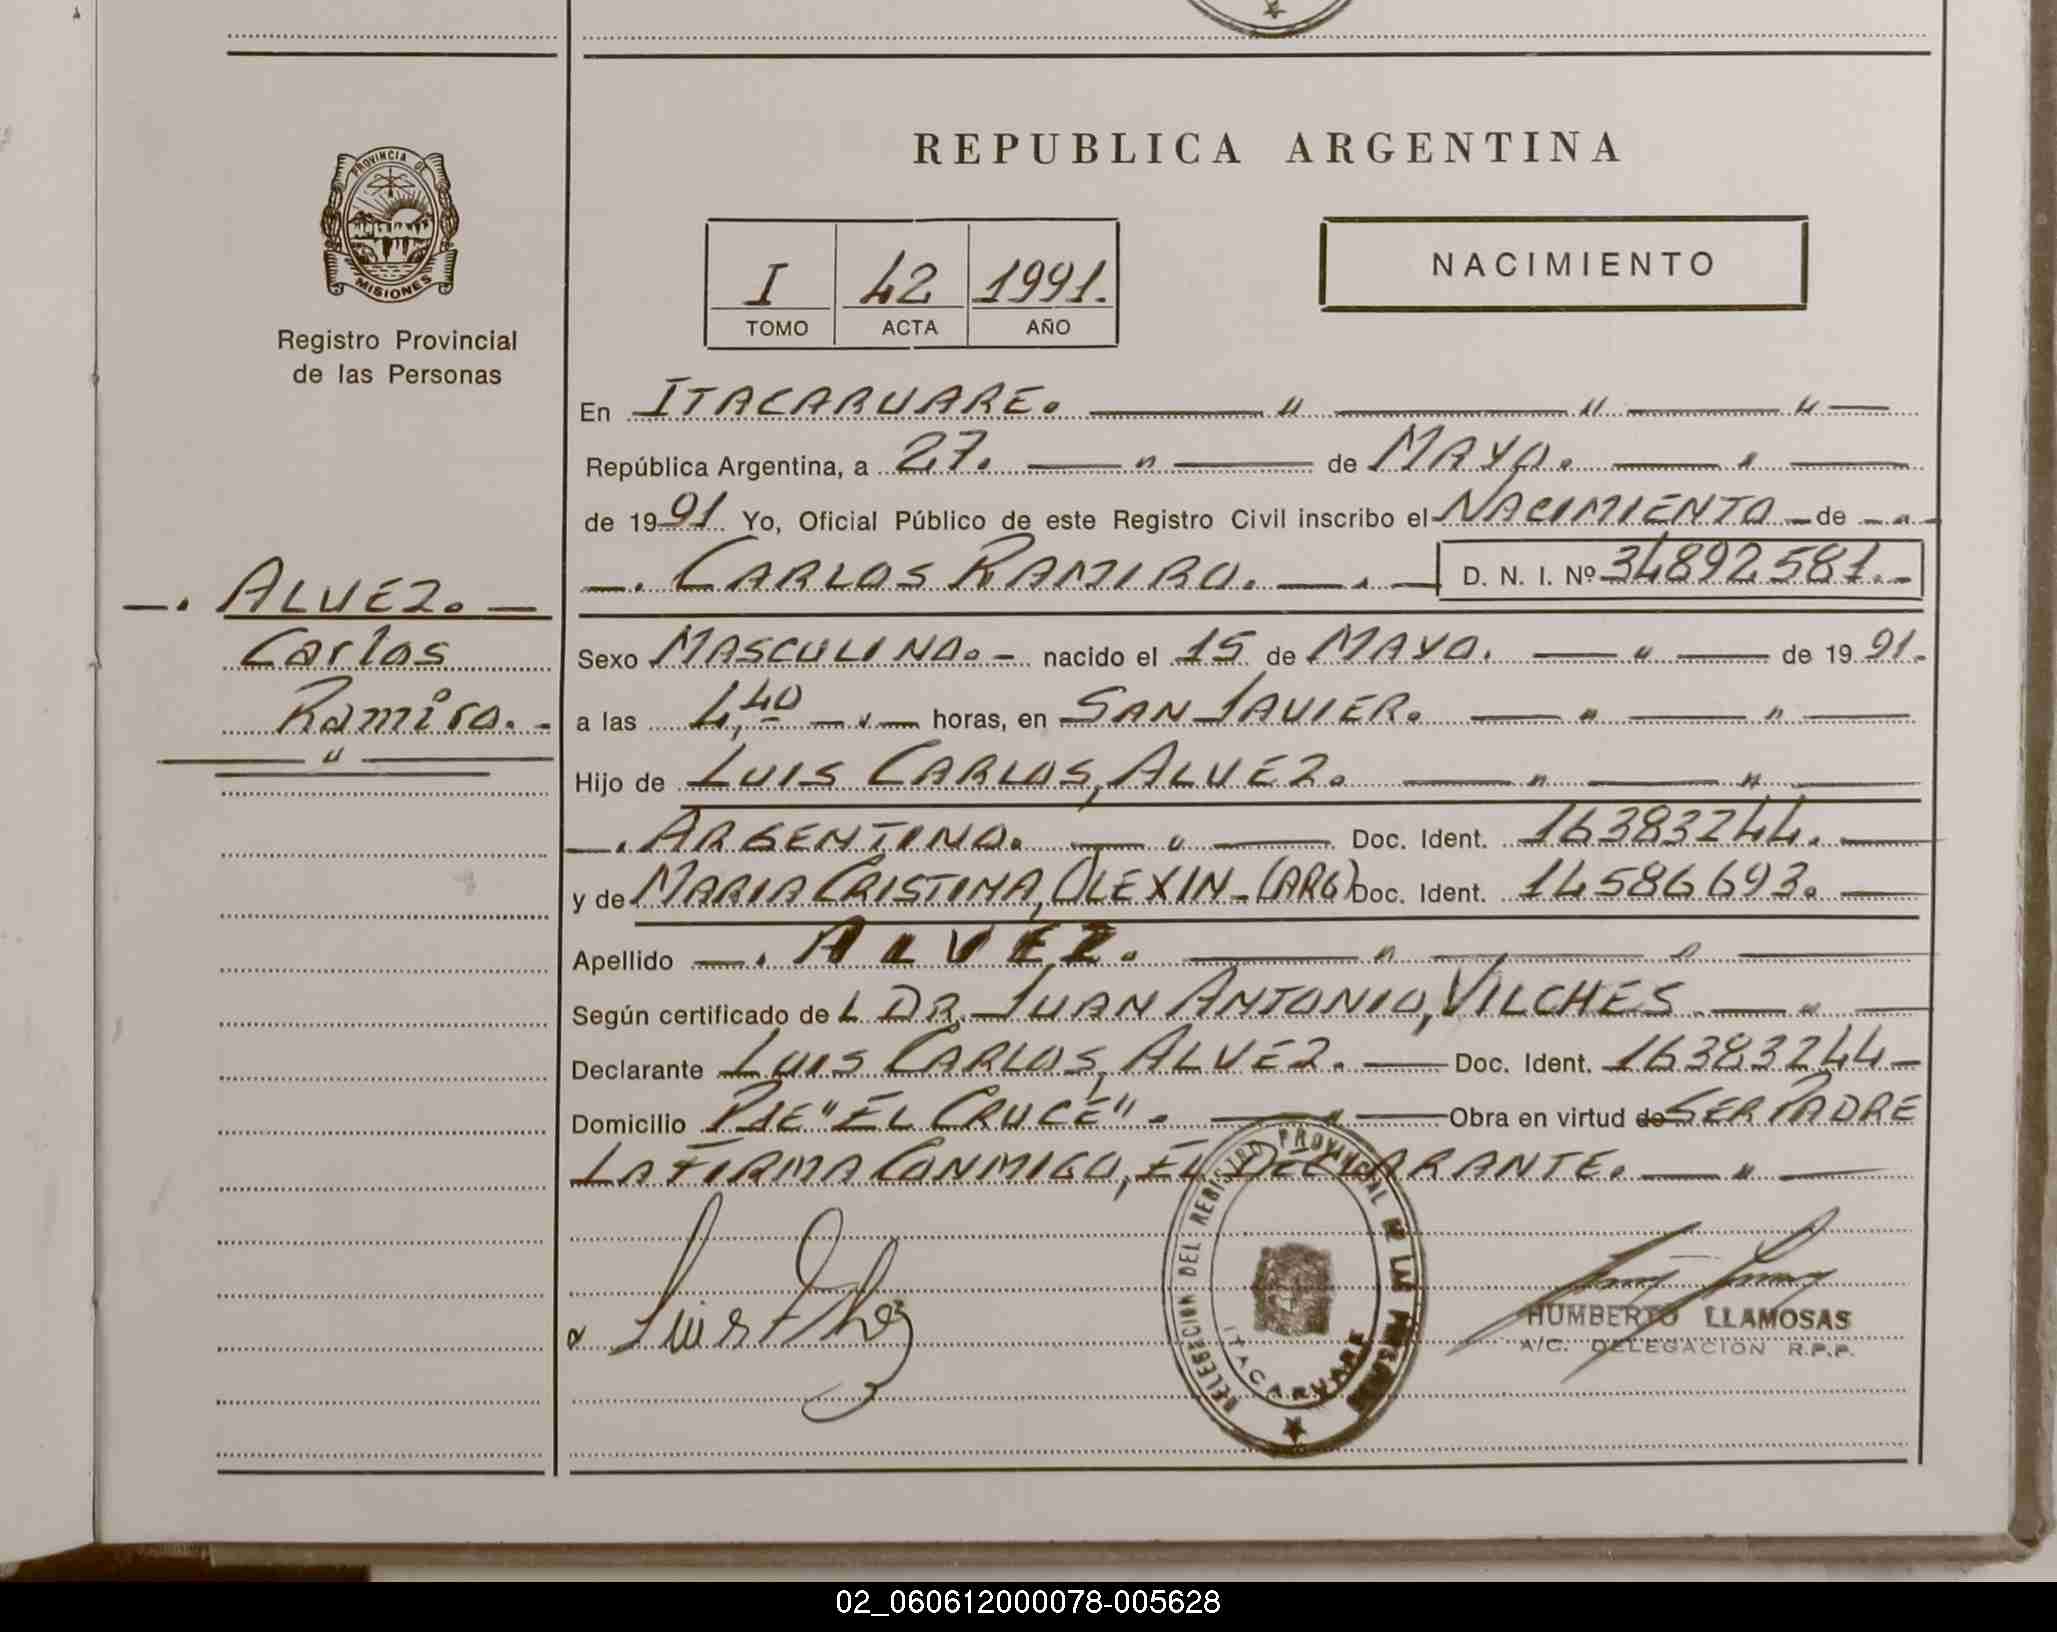 REPUBLICA ARGENTINA
PROVINCIA DE
MISIONES
Registro Provincial
de las Personas
I 42 1991.
TOMO ACTA AÑO
NACIMIENTO
En ITACARUARE.
República Argentina, a 27. de MAYO.
de 1991 Yo, Oficial Público de este Registro Civil inscribo el NACIMIENTO de
CARLOS RAMIRO. D. N. I. Nº 34892581.
ALVEZ.
Carlos
Ramiro.
Sexo MASCULINO. nacido el 15 de MAYO. de 1991.
a las 4,40 horas, en SAN JAVIER.
Hijo de LUIS CARLOS, ALVEZ.
ARGENTINO. Doc. Ident. 16383244.
y de MARIA CRISTINA, OLEXIN-(ARG) Doc. Ident. 14586693.
Apellido ALVEZ.
Según certificado de L DR. JUAN ANTONIO, VILCHES
Declarante LUIS CARLOS, ALVEZ. Doc. Ident. 16383244
Domicilio PJE "EL CRUCE". Obra en virtud de SER PADRE
LA FIRMA CONMIGO, EL DECLARANTE.
DELEGACION DEL REGISTRO PROVINCIAL DE LAS PERSONAS
ITACARUARE
HUMBERTO LLAMOSAS
A/C. DELEGACION R.P.P.
02_060612000078-005628